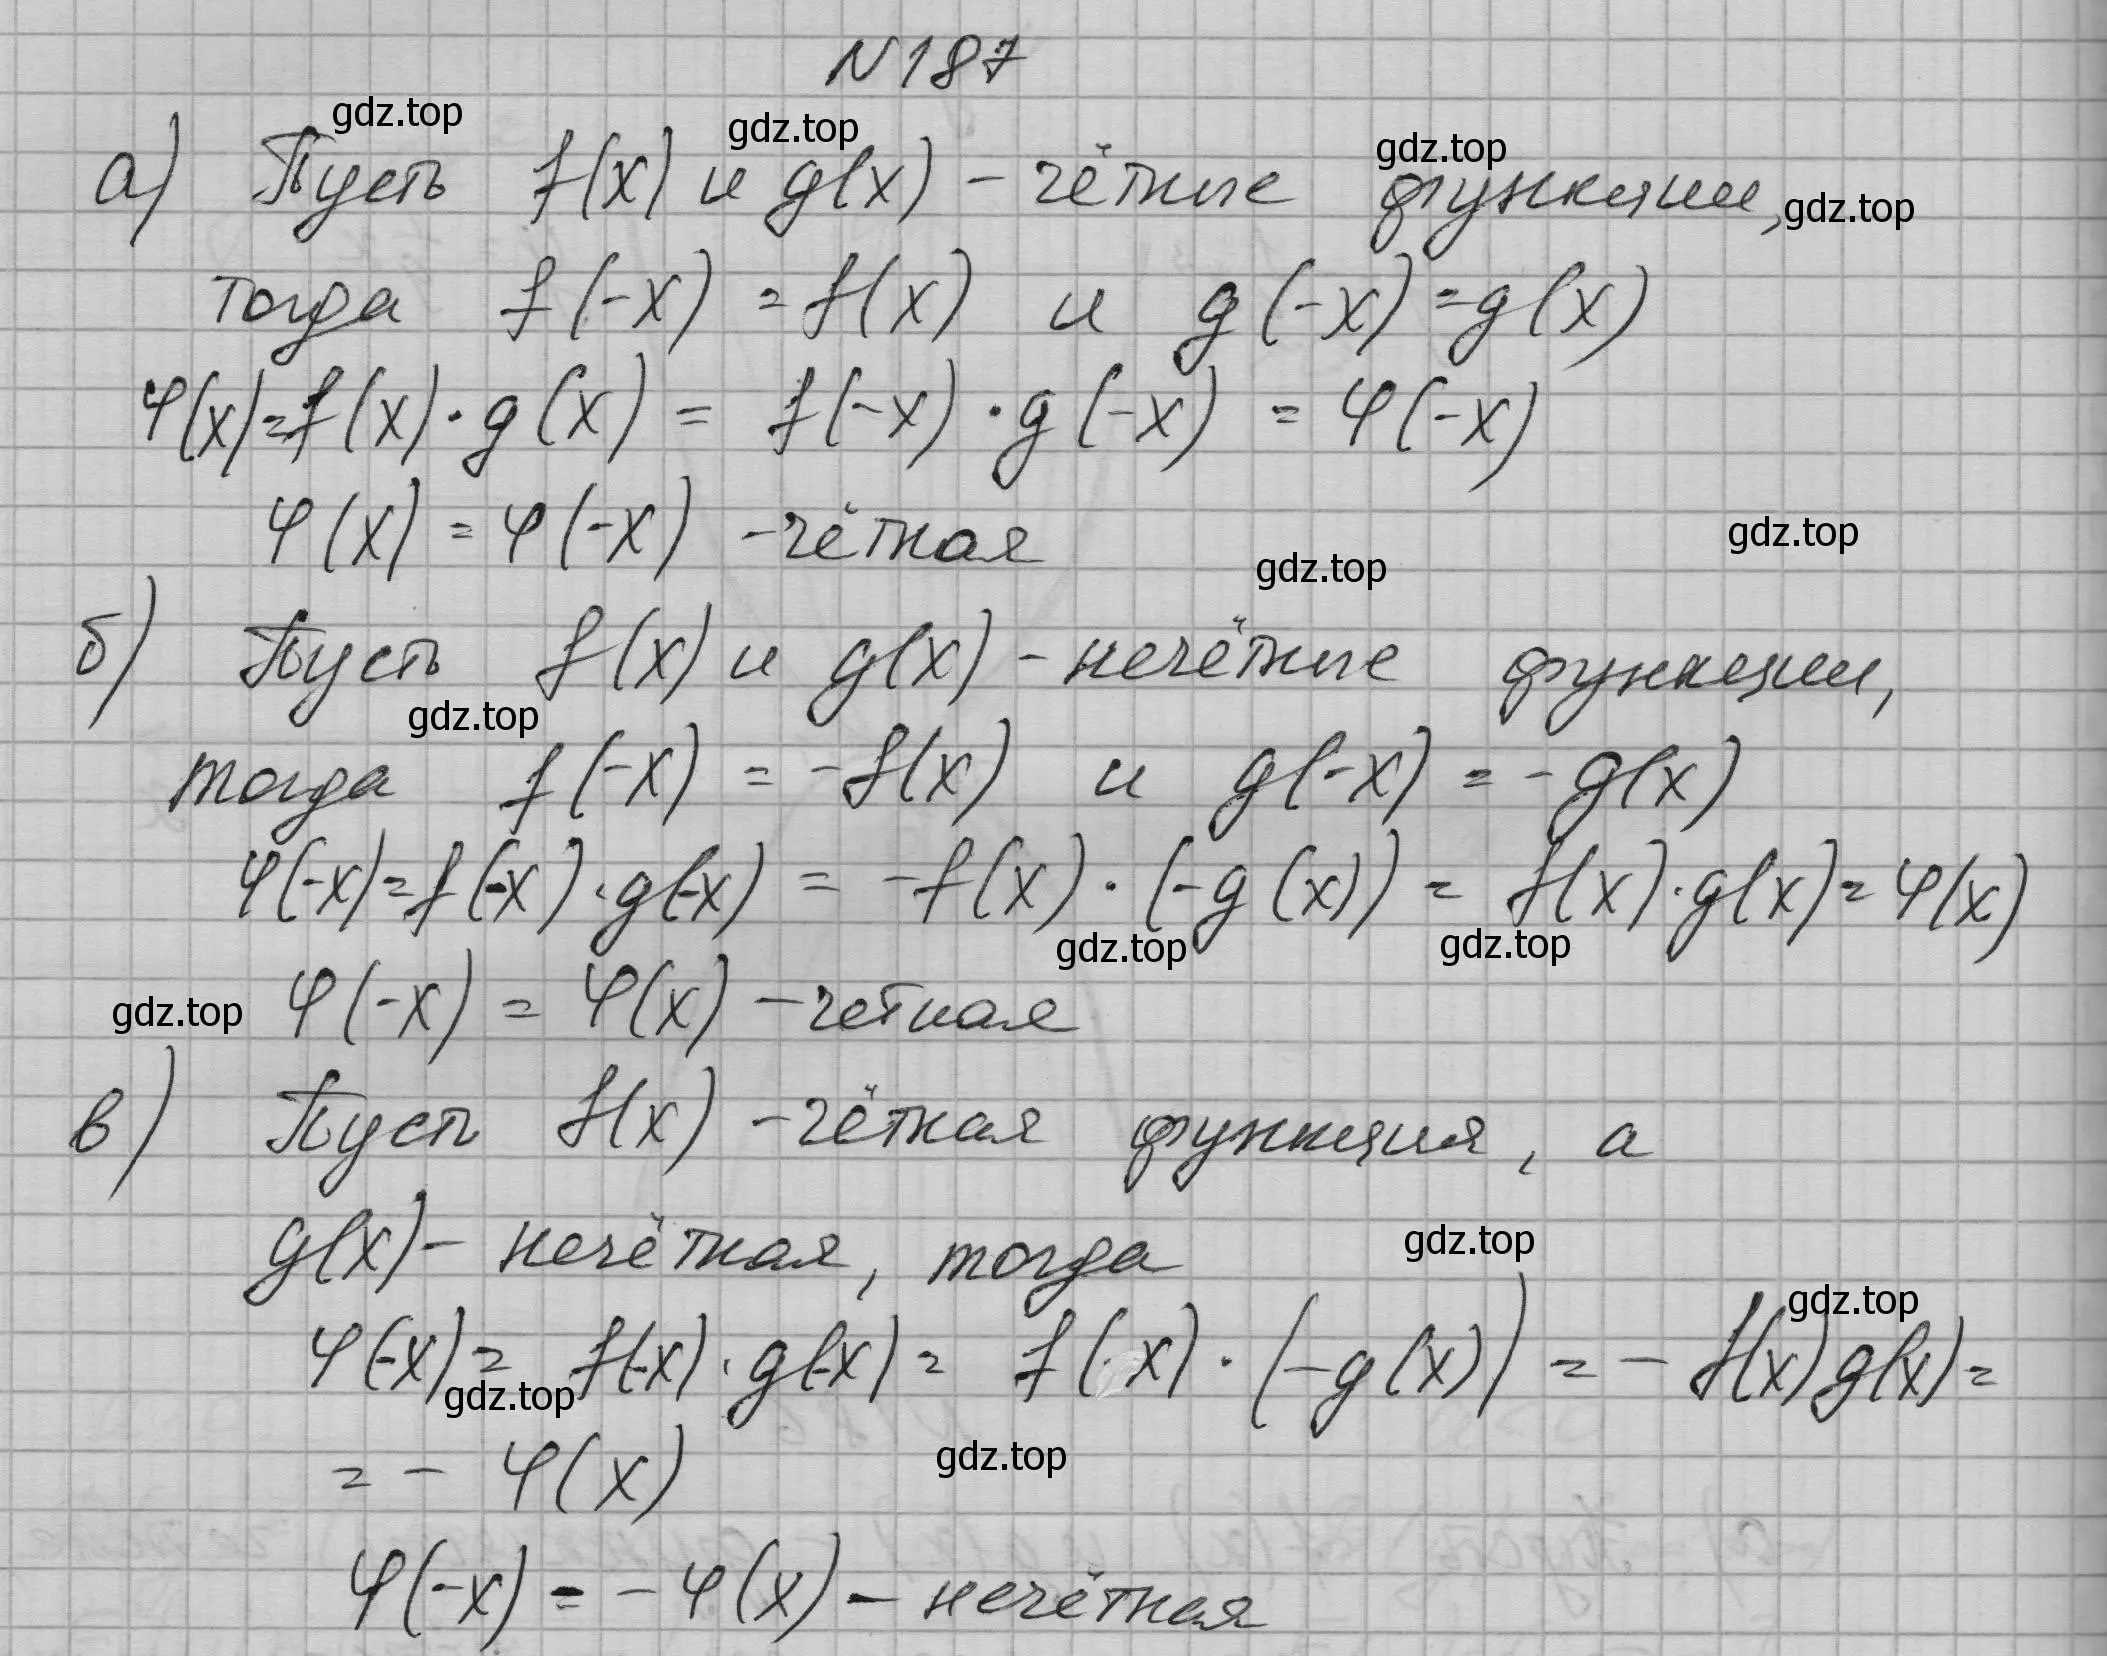 N187
gdz.top gdz.top gdz.top
а) Пусть f(x) и g(x) - чётные функции, gdz.top
тогда f(-x) = f(x) и g(-x) = g(x)
φ(x) = f(x)·g(x) = f(-x)·g(-x) = φ(-x)
φ(x) = φ(-x) - чётная gdz.top gdz.top
б) Пусть f(x) и g(x) - нечётные функции,
gdz.top
тогда f(-x) = -f(x) и g(-x) = -g(x)
φ(-x) = f(-x)·g(-x) = -f(x)·(-g(x)) = f(x)·g(x) = φ(x)
gdz.top gdz.top
gdz.top φ(-x) = φ(x) - четная
в) Пусть f(x) - чётная функция, а
g(x) - нечётная, тогда gdz.top
gdz.top
φ(-x) = f(-x)·g(-x) = f(x)·(-g(x)) = -f(x)g(x) =
gdz.top
= - φ(x) gdz.top
φ(-x) = -φ(x) - нечётная